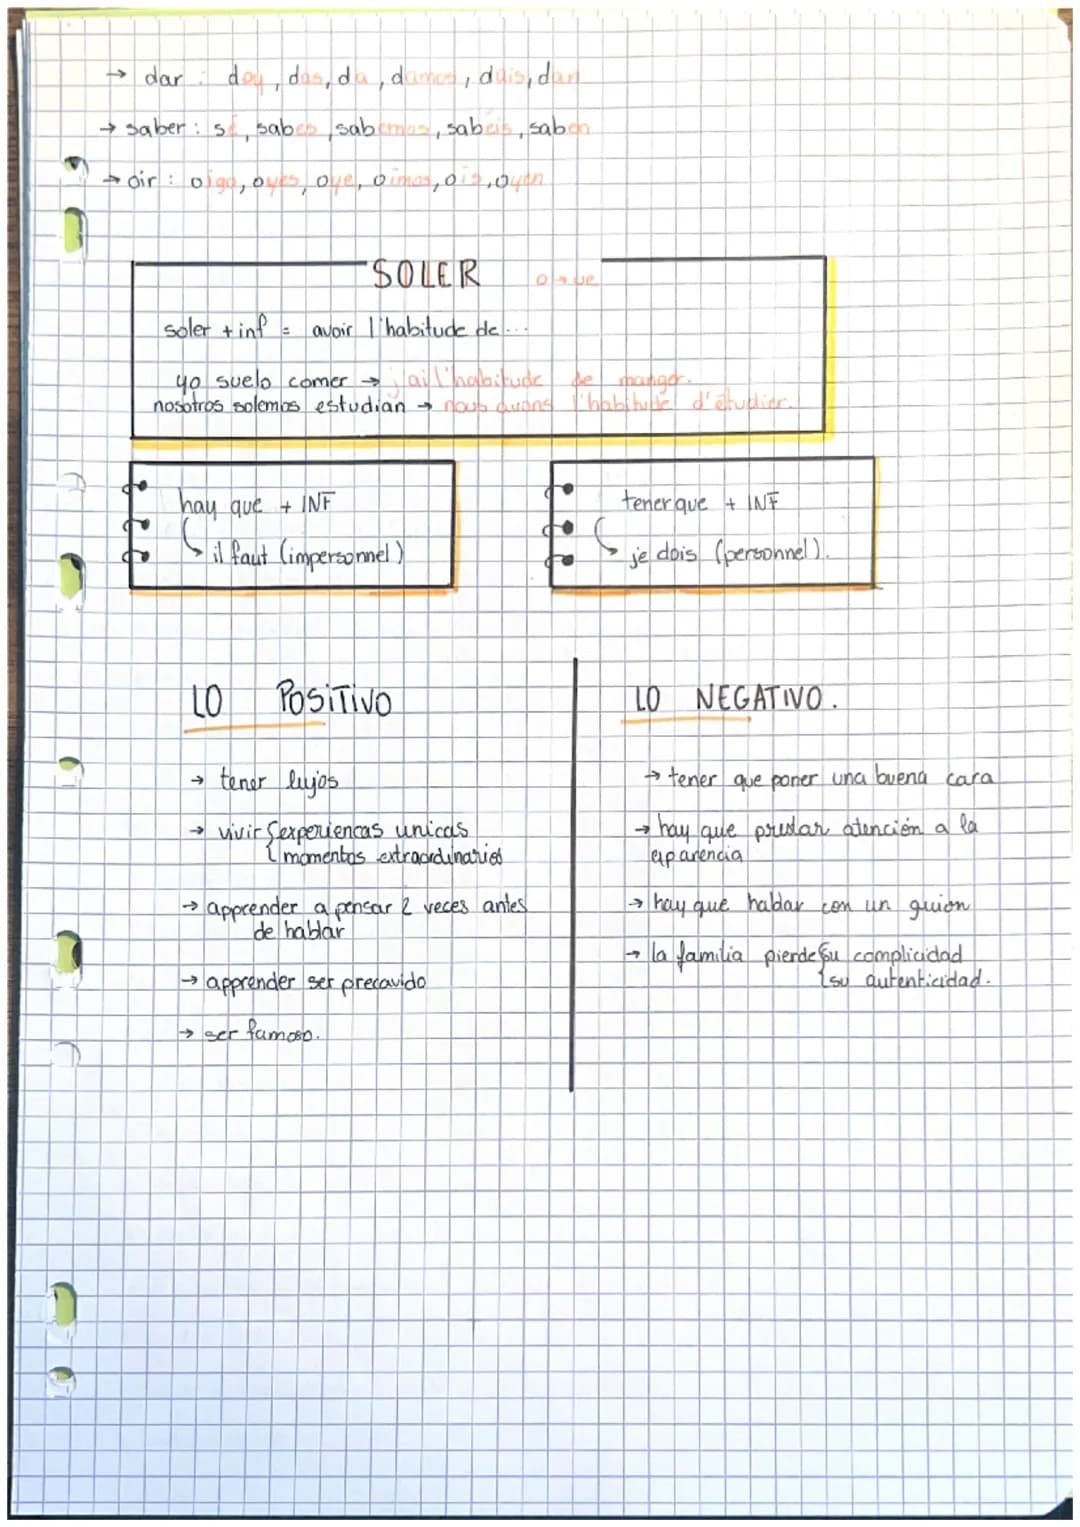 → dar : doy, das, da, damos, dais, dan
→ saber : sé, sabes, sabemos, sabéis, saben
→ oir : oigo, oyes, oye, oimos, oís, oyen
SOLER o→ue
soler + inf = avoir l'habitude de...
yo suelo comer → j'ai l'habitude de manger.
nosotros solemos estudian → nous avons l'habitude d'étudier.
hay que + INF
il faut (impersonnel)
tener que + INF
je dois (personnel).
LO POSiTiVO
→ tener lujos
→ vivir { experiencas unicas
momentos extraordinarios
→ apprender a pensar 2 veces antes
de hablar
→ apprender ser precavido
→ ser famoso.
LO NEGATIVO.
→ tener que poner una buena cara
→ hay que prestar atención a la
aparencia
→ hay que hablar con un guion
→ la familia pierde { su complicidad
su autenticidad.